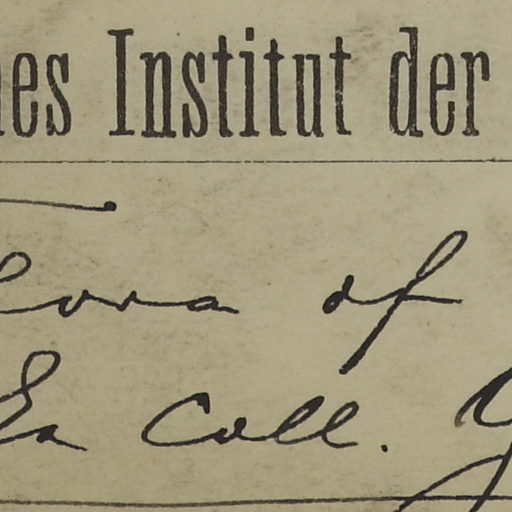 nes Institut der
lora of
Ex Coll. G